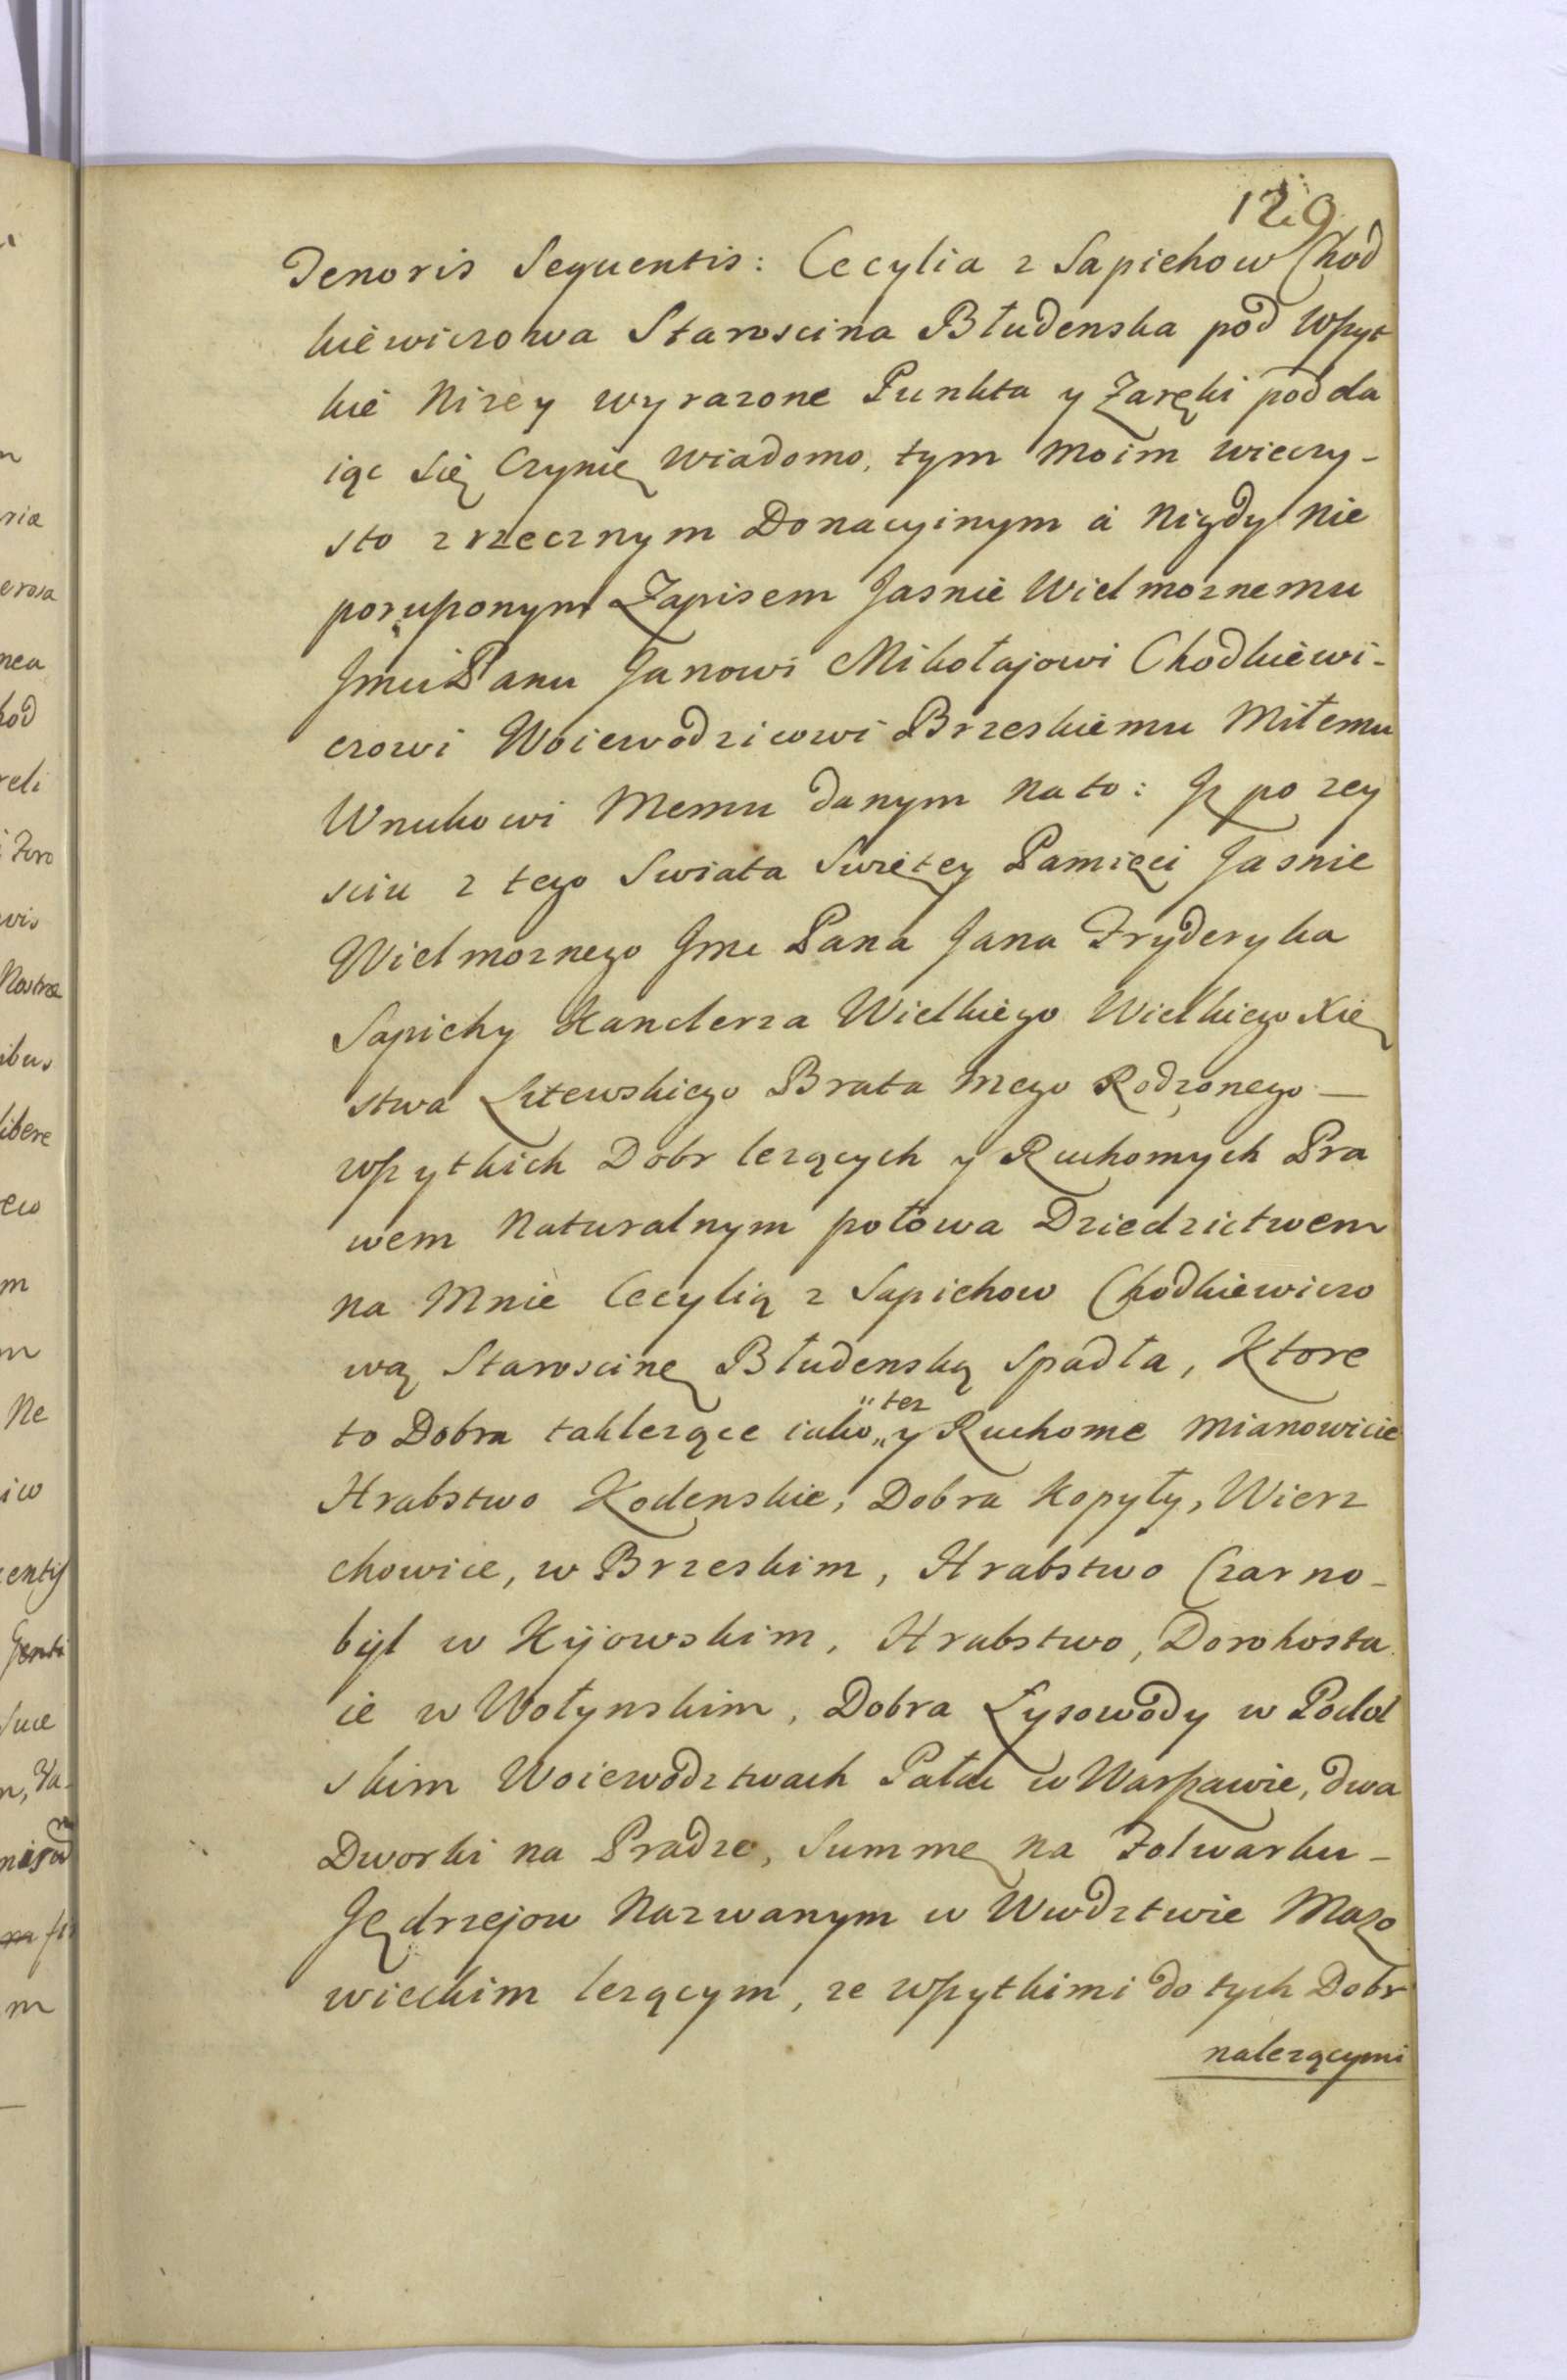 129
Tenoris Sequentis: Cecylia z Sapiehow Chod
kiewiczowa Starościna Błudenska pod wszyt
kie Nizey wyrazone Punkta y Zaręki podda
iąc się Czynię Wiadomo, tym moim wieczy-
sto zrzecznym Donacyinym á Nigdy Nie
poruszonym Zapisem Jasnie Wielmoznemu
Jmci Panu Janowi Mikołajowi Chodkiewi-
czowi Woiewodzicowi Brzeskiemu Miłemu
Wnukowi Memu danym na to: Jz po zey
sciu z tego Swiata Swiętey Pamięci Jasnie
Wielmoznego Jmc Pana Jana Fryderyka
Sapiehy Kanclerza Wielkiego Wielkiego Xię
stwa Litewskiego Brata mego Rodzonego —
wszytkich Dobr lezących y Ruchomych Pra
wem Naturalnym połowa Dziedzictwem
na Mnie Cecylią z Sapiehow Chodkiewiczo
wą Starościnę Błudenską Spadła, Ktore
to Dobra tak lezące iako „y Ruchome mianowicie
"tez
Hrabstwo Kodenskie, Dobra Kopyły, Wierz
chowice, w Brzeskim, Hrabstwo Czarno-
byl w Kijowskim, Hrabstwo, Dorohosta
ie w Wołynskim, Dobra Łysowody w Podol
skim Woiewodztwach Pałac w Warszawie, dwa
Dworki na Pradze, Summę na Folwarku -
Jędrzejow Nazwanym w Wwdztwie Mazo
wieckim lezącym, ze wszytkimi do tych Dobr
nalezącymi